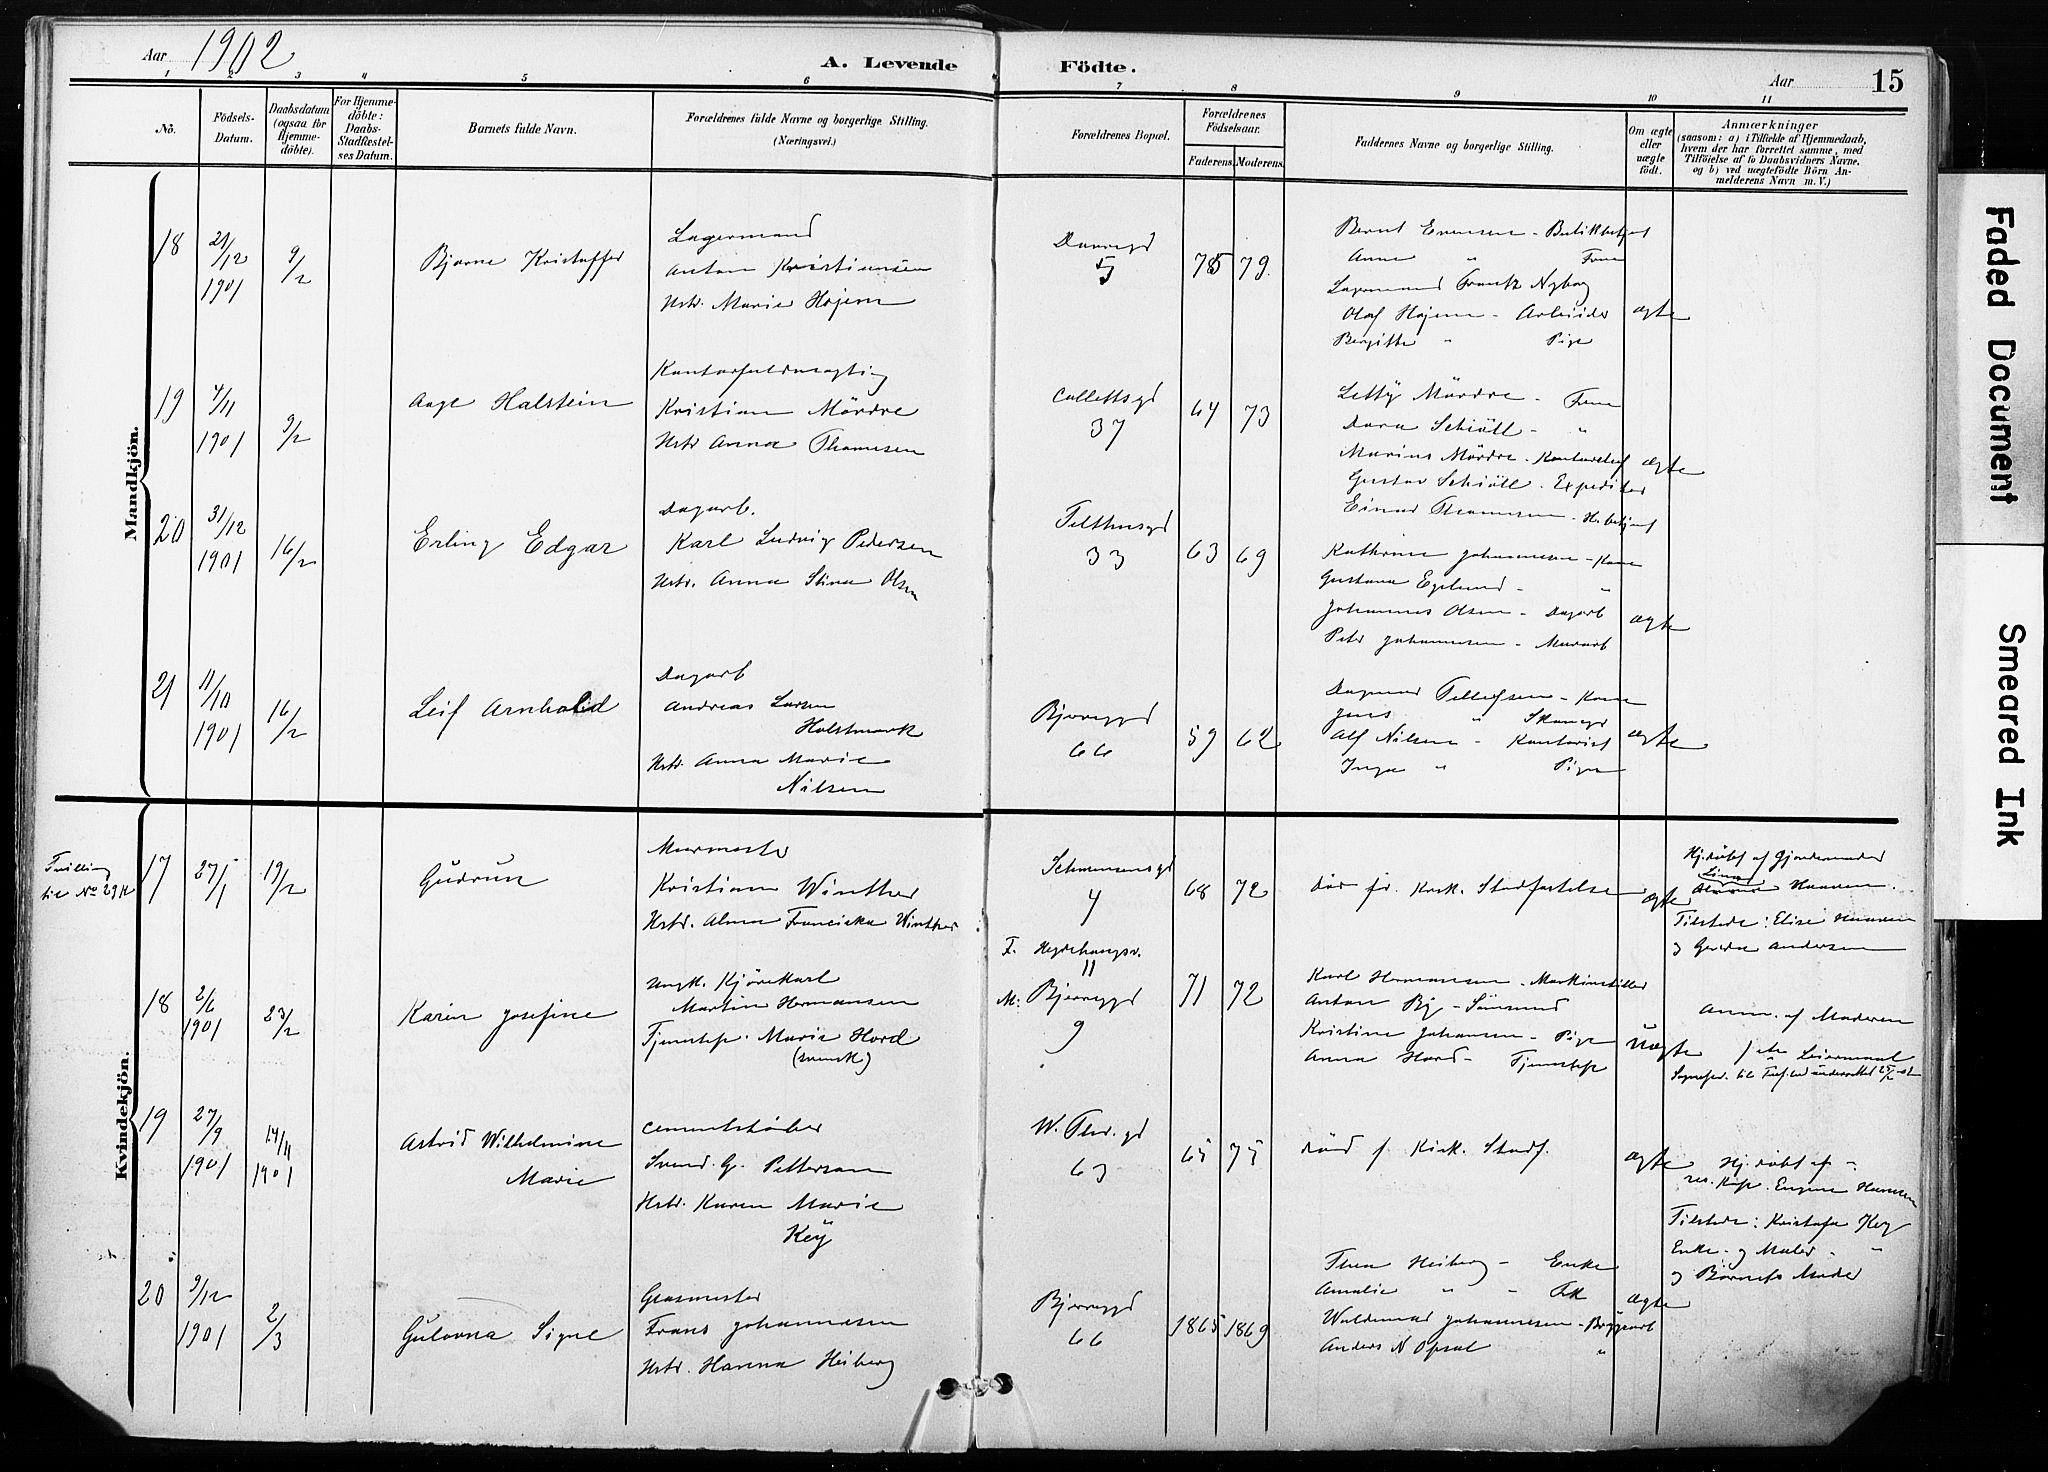 Aar 1902
A. Levende Födte.
Aar 15
1 2 3 4 5 6 7 8 9 10 11
No.
Födsels-Datum.
Daabsdatum (ogsaa for Hjemme-döbte).
For Hjemme-döbte: Daabs-Stadfæstel-ses Datum.
Barnets fulde Navn.
Forældrenes fulde Navne og borgerlige Stilling. (Næringsvei.)
Forældrenes Bopæl.
Forældrenes Födselsaar.
Faderens. Moderens.
Faddernes Navne og borgerlige Stilling.
Om ægte eller uægte födt.
Anmærkninger
(saasom: a) i Tilfælde af Hjemmedaab,
hvem der har forrettet samme, med
Tilföielse af to Daabsvidners Navne.
og b) ved uægtefödte Börn An-
melderens Navn m. V.)
Mandkjön.
18 21/12 1901 9/2 Bjarne Kristoffer
Lagermand
Anton Kristiansen
Hstr. Marie Hojem
5 75 79.
Bernt Evensen - Butikbetjent
Anne " Frue
Lagermand Frantz Nyborg
Olaf Hojem - Arbeider
Bergitte " Pige
ægte
19 4/11 1901 9/2 Aage Halstein
Kontorfuldmægtig
Kristian Mördre
Hstr Anna Thomesen
Collettsgd
37 64 73
Letty Mördre - Frue
Dora Schiöll - "
Marius Mördre - Kontorchef
Gustav Schiöll - Expeditør
Einar Thomesen - H.betjent
ægte
20 31/12 1901 16/2 Erling Edgar
Dagarb.
Karl Ludvig Pedersen
Hstr. Anna Stina Olsen
Telthusgd
33 63 69
Kathrine Johannesen - Kone
Gustava Egelund - "
Johannes Olsen - Dagarb
Peter Johannesen - Murarb
ægte
21 11/10 1901 16/2 Leif Arnhold
Dagarb
Andreas Larsen
Holstmark
Hstr. Anna Marie
Nilsen
Bjerregd
66 59 62
Dagmar Tellefsen - Kone
Jens "
Alf Nilsen - Kontorist
Inga " Pige
ægte
Kvindekjön.
Tvilling
til No 29
17 27/1 19/2 Gudrun
Murmester
Kristian Winther
Hstr. Alma Franciska Winther
4 68 72
död før Kirk. Stadfæstelse
ægte
Hj.döbt af Gjordemoder
Lina
Haaven.
Tilstede: Elise Haaven
og Gerda Andersen
18 2/6 1901 23/2 Karin Josefine
Ungk. Kjørekarl
Martin Hermansen
Tjenestep. Marie Hord
(svensk)
F. Hegdehaugsv.
11
M: Bjerregd
9 71 72
Karl Hermansen - Maskinstiller
Anton By - Sömand
Kristine Johansen - Pige
Anna Hord - Tjenestep
Uægte
Anm. af Moderen
1ste Leiermaal
19 27/9 1901 14/11 1901 Astrid Wilhelmine
Marie
Cementstøber
Svend G. Petterson
Hstr. Karen Marie
Key
W. Thr. gd
63 65 75
död f. Kirk. Stadf.
ægte
Hj. döbt af -
res. Kap. Eugene Hanssen
Tilstede: Kristofa Key
Enke - og Maler - "
og Barnets Moder
20 9/12 1901 2/3 Gulovna Signe
Glasmester
Frans Johannesen
Hstr. Hanna Heiberg
Bjerregd
66 1865 1869
Thea Heiberg - Enke
Amalie " - Frk
Waldemar Johannesen - Bryggearb
Anders N Opsal "
ægte
Faded Document
Smeared Ink